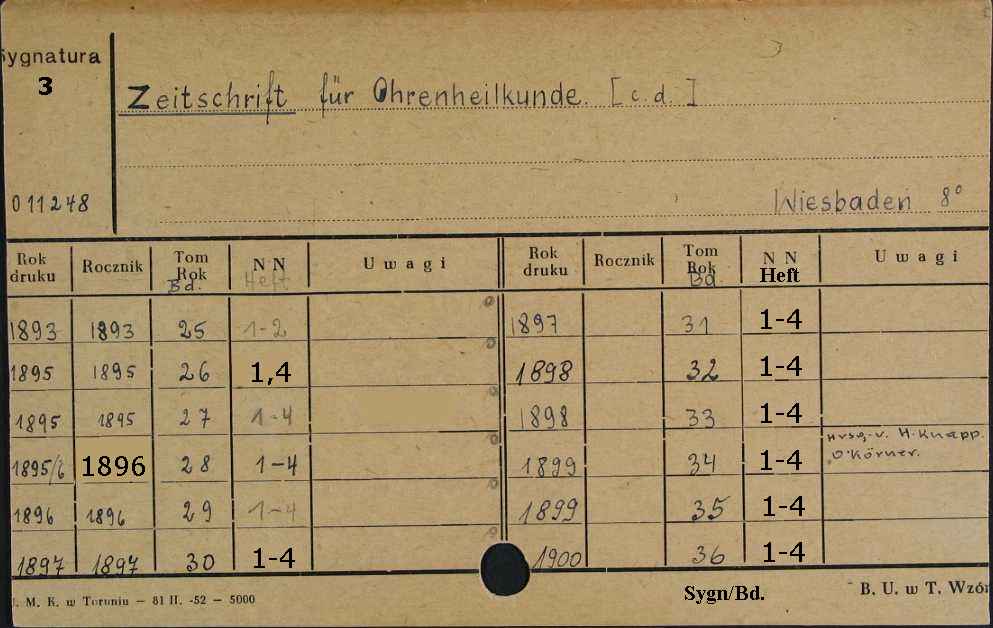 Sygnatura
3
Zeitschrift für Ohrenheilkunde. [c.d.]
011248
Wiesbaden 8°
Rok druku Rocznik Tom Rok Bd. NN Heft Uwagi Rok druku Rocznik Tom Rok Bd. NN Heft Uwagi
1893 1893 25 1-2 1897 31 1-4
1895 1895 26 1,4 1898 32 1-4
1895 1895 27 1-4 1898 33 1-4
Hrsg. v. H. Knapp.
1895/6 1896 28 1-4 1899 34 1-4 O. Körner.
1896 1896 29 1-4 1899 35 1-4
1897 1897 30 1-4 1900 36 1-4
Sygn/Bd.
. M. K. w Toruniu – 81 II. -52 – 5000
B. U. w T. Wzór